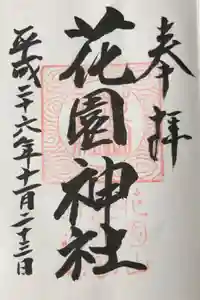 奉拝
花園神社
平成二十六年十一月二十三日